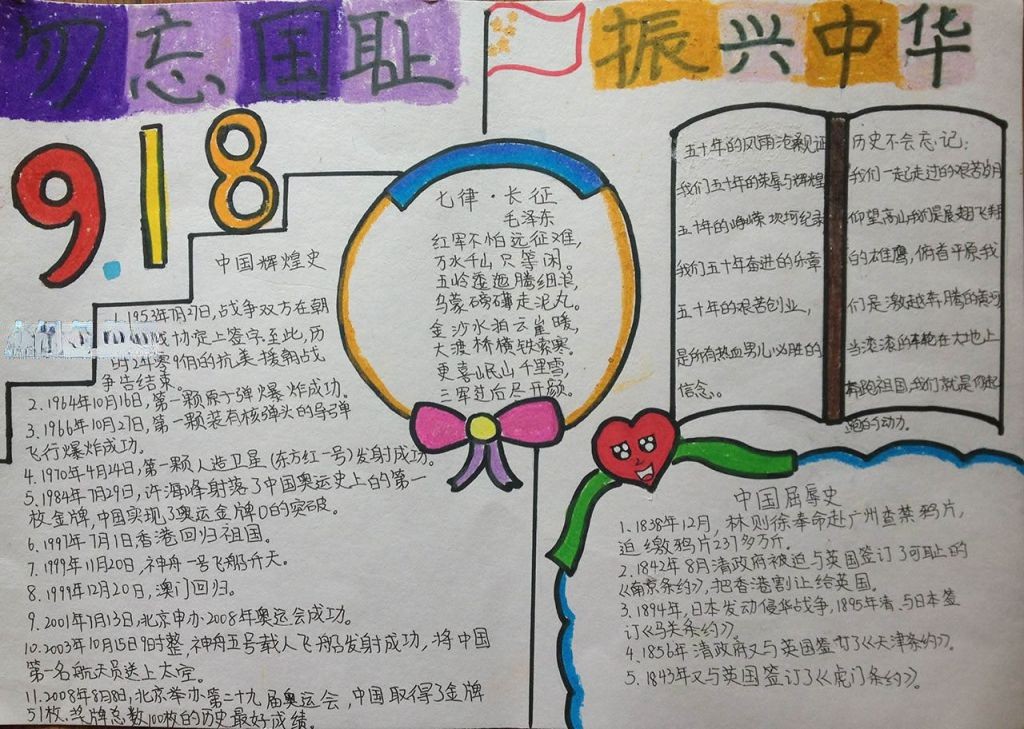 勿忘国耻 振兴中华
9.18
中国辉煌史
1.1953年7月27日,战争双方在朝
战协定上签字.至此,历
时2年零9个月的抗美援朝战
争告结束。
2.1964年10月16日,第一颗原子弹爆炸成功。
3.1966年10月27日,第一颗装有核弹头的导弹
飞行爆炸成功。
4.1970年4月24日,第一颗人造卫星(东方红一号)发射成功。
5.1984年7月29日,许海峰射落了中国奥运史上的第一
枚金牌,中国实现了奥运金牌0的突破。
6.1997年7月1日,香港回归祖国。
7.1999年11月20日,神舟一号飞船升天。
8.1999年12月20日,澳门回归。
9.2001年7月13日,北京申办2008年奥运会成功。
10.2003年10月15日9时整,神舟五号载人飞船发射成功,将中国
第一名航天员送上太空。
11.2008年8月8日,北京举办第二十九届奥运会,中国取得了金牌
51枚.奖牌总数100枚的历史最好成绩。
七律·长征
毛泽东
红军不怕远征难,
万水千山只等闲。
五岭逶迤腾细浪,
乌蒙磅礴走泥丸。
金沙水拍云崖暖,
大渡桥横铁索寒。
更喜岷山千里雪,
三军过后尽开颜。
五十年的风雨沧桑见证
我们五十年的荣辱与辉煌
五十年的峥嵘坎坷纪录
我们五十年奋进的乐章
五十年的艰苦创业,
是所有热血男儿必胜的
信念。
历史不会忘记:
我们一起走过的艰苦岁月
仰望高山我们是展翅飞翔
的雄鹰,俯看平原我
们是激越奔腾的黄河
当滚滚的车轮在大地上
奔跑祖国,我们就是你起
跑的动力。
中国屈辱史
1.1838年12月,林则徐奉命赴广州查禁鸦片,
迫缴鸦片237多万斤。
2.1842年8月清政府被迫与英国签订了可耻的
《南京条约》,把香港割让给英国。
3.1894年,日本发动侵华战争,1895年清与日本签
订《马关条约》。
4.1856年清政府又与英国签订了《天津条约》。
5.1843年又与英国签订了《虎门条约》。